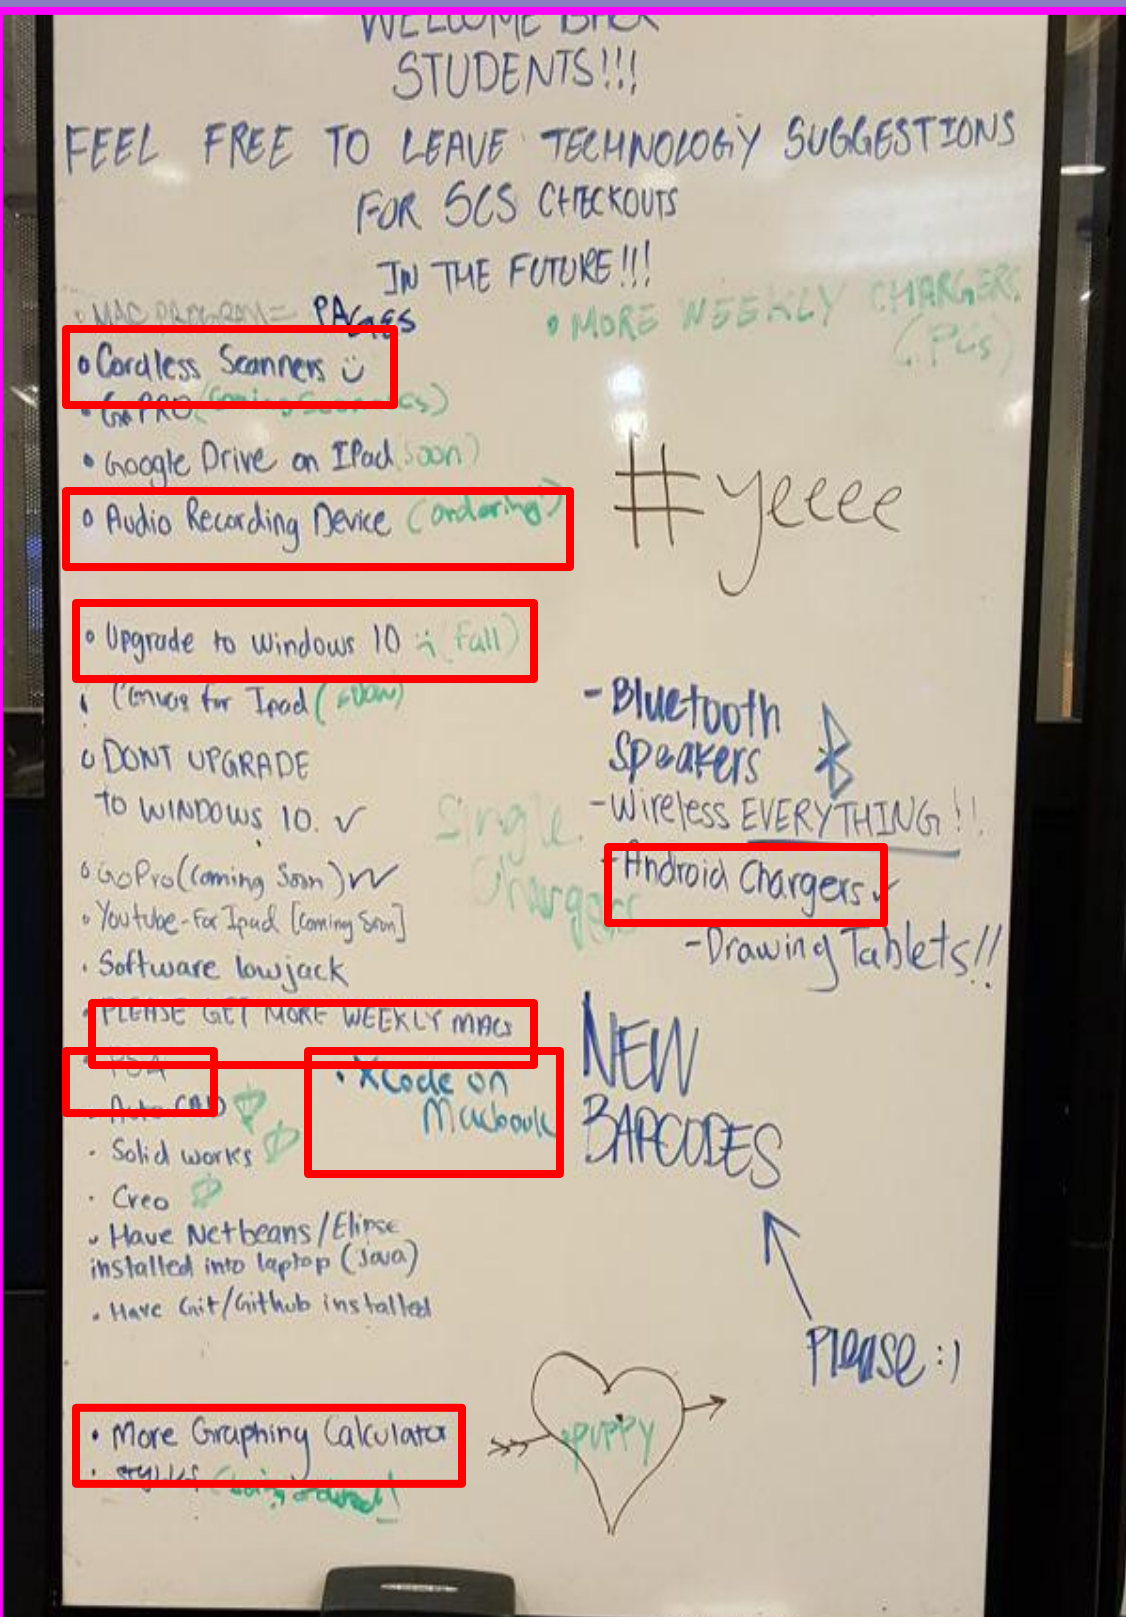 WELCOME BACK
STUDENTS!!!
FEEL FREE TO LEAVE TECHNOLOGY SUGGESTIONS
FOR SCS CHECKOUTS
IN THE FUTURE!!!
• MAC PROGRAM = PAGES
• Cordless Scanners
• GoPRO (Coming
• Google Drive on IPad (soon)
• Audio Recording Device (ordering)
• Upgrade to Windows 10 (Fall)
for Ipad (
• DONT UPGRADE
TO WINDOWS 10. ✓
• GoPro (Coming Soon) ✓✓
• Youtube - For Ipad [Coming Soon]
• Software lowjack
• PLEASE GET MORE WEEKLY MACS
• Auto CAD
• Solid works
• Creo
• Have Netbeans/Elipse
installed into laptop (Java)
• Have Git/Github installed
• More Graphing Calculator
• XCode on
Macbook
• MORE WEEKLY CHARGERS
(PCs)
#yeeee
Single
Chargers
- Bluetooth
Speakers
- Wireless EVERYTHING!!
- Android Chargers ✓
- Drawing Tablets!!
NEW
BARCODES
Please :)
PUPPY